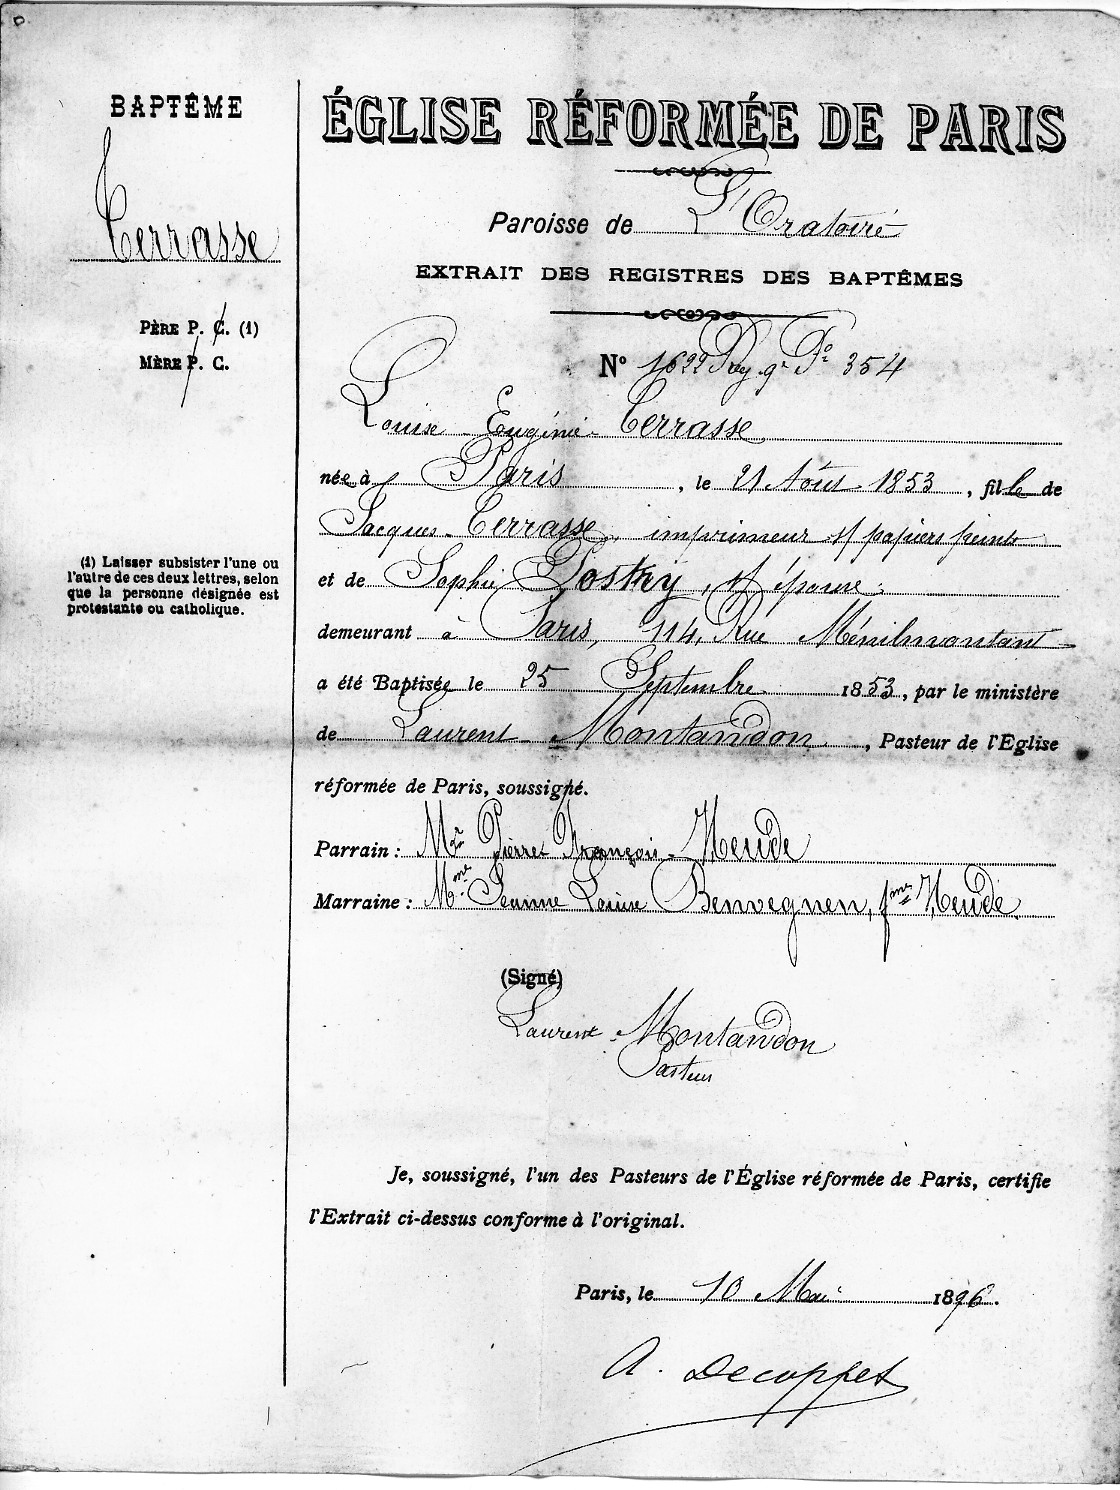 BAPTÊME
Terrasse
PÈRE P. C. (1)
MÈRE P. C.
(1) Laisser subsister l'une ou
l'autre de ces deux lettres, selon
que la personne désignée est
protestante ou catholique.
ÉGLISE RÉFORMÉE DE PARIS
Paroisse de L'Oratoire
EXTRAIT DES REGISTRES DES BAPTÊMES
N° 1622 Reg. 9 F° 354
Louise Eugénie Terrasse
née à Paris, le 21 Août 1853, fille de
Jacques Terrasse, imprimeur s/ papiers peints
et de Sophie Postry, s/ épouse
demeurant à Paris, 114, Rue Ménilmontant
a été Baptisée le 25 Septembre 1853, par le ministère
de Laurent Montandon, Pasteur de l'Eglise
réformée de Paris, soussigné.
Parrain : Mr Pierre François Heude
Marraine : Mme Jeanne Louise Benvegnen, fme Heude.
(Signé)
Laurent Montandon
Pasteur
Je, soussigné, l'un des Pasteurs de l'Église réformée de Paris, certifie
l'Extrait ci-dessus conforme à l'original.
Paris, le 10 Mai 1896.
A. Decoppet